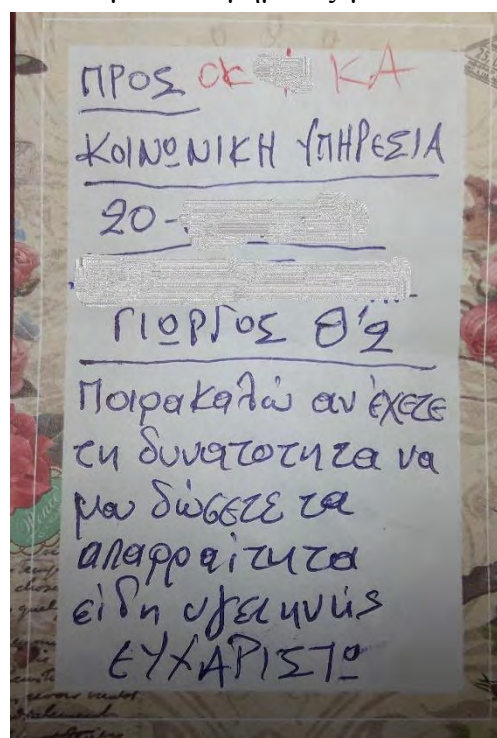 ΠΡΟΣ ΟΚ ΚΑ
ΚΟΙΝΩΝΙΚΗ ΥΠΗΡΕΣΙΑ
20-
ΓΙΩΡΓΟΣ Θ'2
Παρακαλώ αν έχετε
τη δυνατοτητα να
μου δώσετε τα
απαραίτητα
είδη υγειηνής
ΕΥΧΑΡΙΣΤΩ